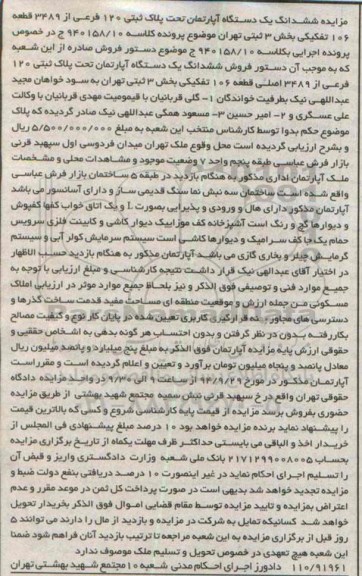 مزایده ششدانگ یک دستگاه آپارتمان تحت پلاک ثبتی ۱۲۰ فرعی از ۳۴۸۹ قطعه
۱۰۶ تفکیکی بخش ۳ ثبتی تهران موضوع پرونده کلاسه ۹۴۰۱۵۸/۱۰ ج در خصوص
پرونده اجرایی بکلاسه ۹۴۰۱۵۸/۱۰ ج موضوع دستور فروش صادره از این شعبه
که به موجب آن دستور فروش ششدانگ یک دستگاه آپارتمان تحت پلاک ثبتی ۱۲۰
فرعی از ۳۴۸۹ اصلی قطعه ۱۰۶ تفکیکی بخش ۳ ثبتی تهران به سود خواهان مجید
عبداللهی نیک بطرفیت خواندگان ۱- گلی قربانیان با قیمومیت مهدی قربانیان با وکالت
علی عسگری و ۲- امیر حسین ۳- مسعود همگی عبداللهی نیک صادر گردیده که پلاک
موضوع حکم بدوا توسط کارشناس منتخب این شعبه به مبلغ ۵/۵۰۰/۰۰۰/۰۰۰ ریال
و بشرح ارزیابی گردیده است محل وقوع ملک تهران میدان فردوسی اول سپهبد قرنی
بازار فرش عباسی طبقه پنجم واحد ۷ وضعیت موجود و مشاهدات محلی و مشخصات
ملک آپارتمان اداری مذکور به هنگام بازدید در طبقه ۵ ساختمان بازار فرش عباسی
واقع شده است ساختمان سه نبش نما سنگ قدیمی ساز و دارای آسانسور می باشد
آپارتمان مذکور دارای هال و ورودی و پذیرایی بصورت L و یک اتاق خواب کفها کفپوش
و دیوارها گچ و رنگ است آشپزخانه کف موزاییک دیوار کاشی و کابینت فلزی سرویس
حمام یک جا کف سرامیک و دیوارها کاشی است سیستم سرمایش کولر آبی و سیستم
گرمایش چیلر و بخاری گازی می باشد آپارتمان مذکور به هنگام بازدید حسب الاظهار
در اختیار آقای عبدالهی نیک قرار داشت نتیجه کارشناسی و مبلغ ارزیابی با توجه به
جمیع موارد فنی و توصیفی فوق الذکر و نیز بلحاظ جمیع موارد موثر در ارزیابی املاک
مسکونی من جمله ارزش و موقعیت منطقه ای مساحت مفید قدمت ساخت گذرها و
دسترسی های مجاور به قرارگیری کاربری تعیین شده در پایان کار نوع و کیفیت مصالح
بکاررفته بدون در نظر گرفتن و بدون احتساب هر گونه بدهی به اشخاص حقیقی و
حقوقی ارزش پایه مزایده آپارتمان فوق الذکر به مبلغ پنج میلیارد و پانصد میلیون ریال
معادل پانصد و پنجاه میلیون تومان برآورد و تعیین و اعلام گردیده است و مقرر است
آپارتمان مذکور در مورخ ۹۴/۹/۲۹ از ساعت ۹ الی ۹/۳۰ در واحد مزایده دادگاه
حقوقی تهران واقع در خ سپهبد قرنی نبش سمیه مجتمع شهید بهشتی از طریق مزایده
حضوری بفروش برسد مزایده از قیمت پایه کارشناسی شروع و کسی که بالاترین قیمت
را پیشنهاد نماید برنده مزایده خواهد بود ۱۰ درصد مبلغ پیشنهادی فی المجلس از
خریدار اخذ و الباقی می بایستی حداکثر ظرف مهلت یکماه از تاریخ برگزاری مزایده
بحساب ۲۱۷۱۲۹۹۰۰۸۰۰۵ بانک ملی شعبه وزارت دادگستری واریز و قبض آن
را تسلیم اجرای احکام نماید در غیر اینصورت ۱۰ درصد دریافتی بنفع دولت ضبط و
مزایده تجدید خواهد شد بدیهی است در صورت پرداخت کل ثمن در موعد مقرر و عدم
اعتراض بمزایده و تایید مزایده توسط مقام قضایی اموال فوق الذکر بخریدار تحویل
خواهد شد کسانیکه تمایل به شرکت در مزایده و بازدید از مال را دارند می توانند ۵
روز قبل از برگزاری مزایده به این شعبه مراجعه تا ترتیب بازدید آنان فراهم شود ضمنا
این شعبه هیچ تعهدی در خصوص تحویل و تسلیم ملک موصوف ندارد
۱۱۰/۹۱۹۶۱ دادورز اجرای احکام مدنی شعبه ۱۰ مجتمع شهید بهشتی تهران